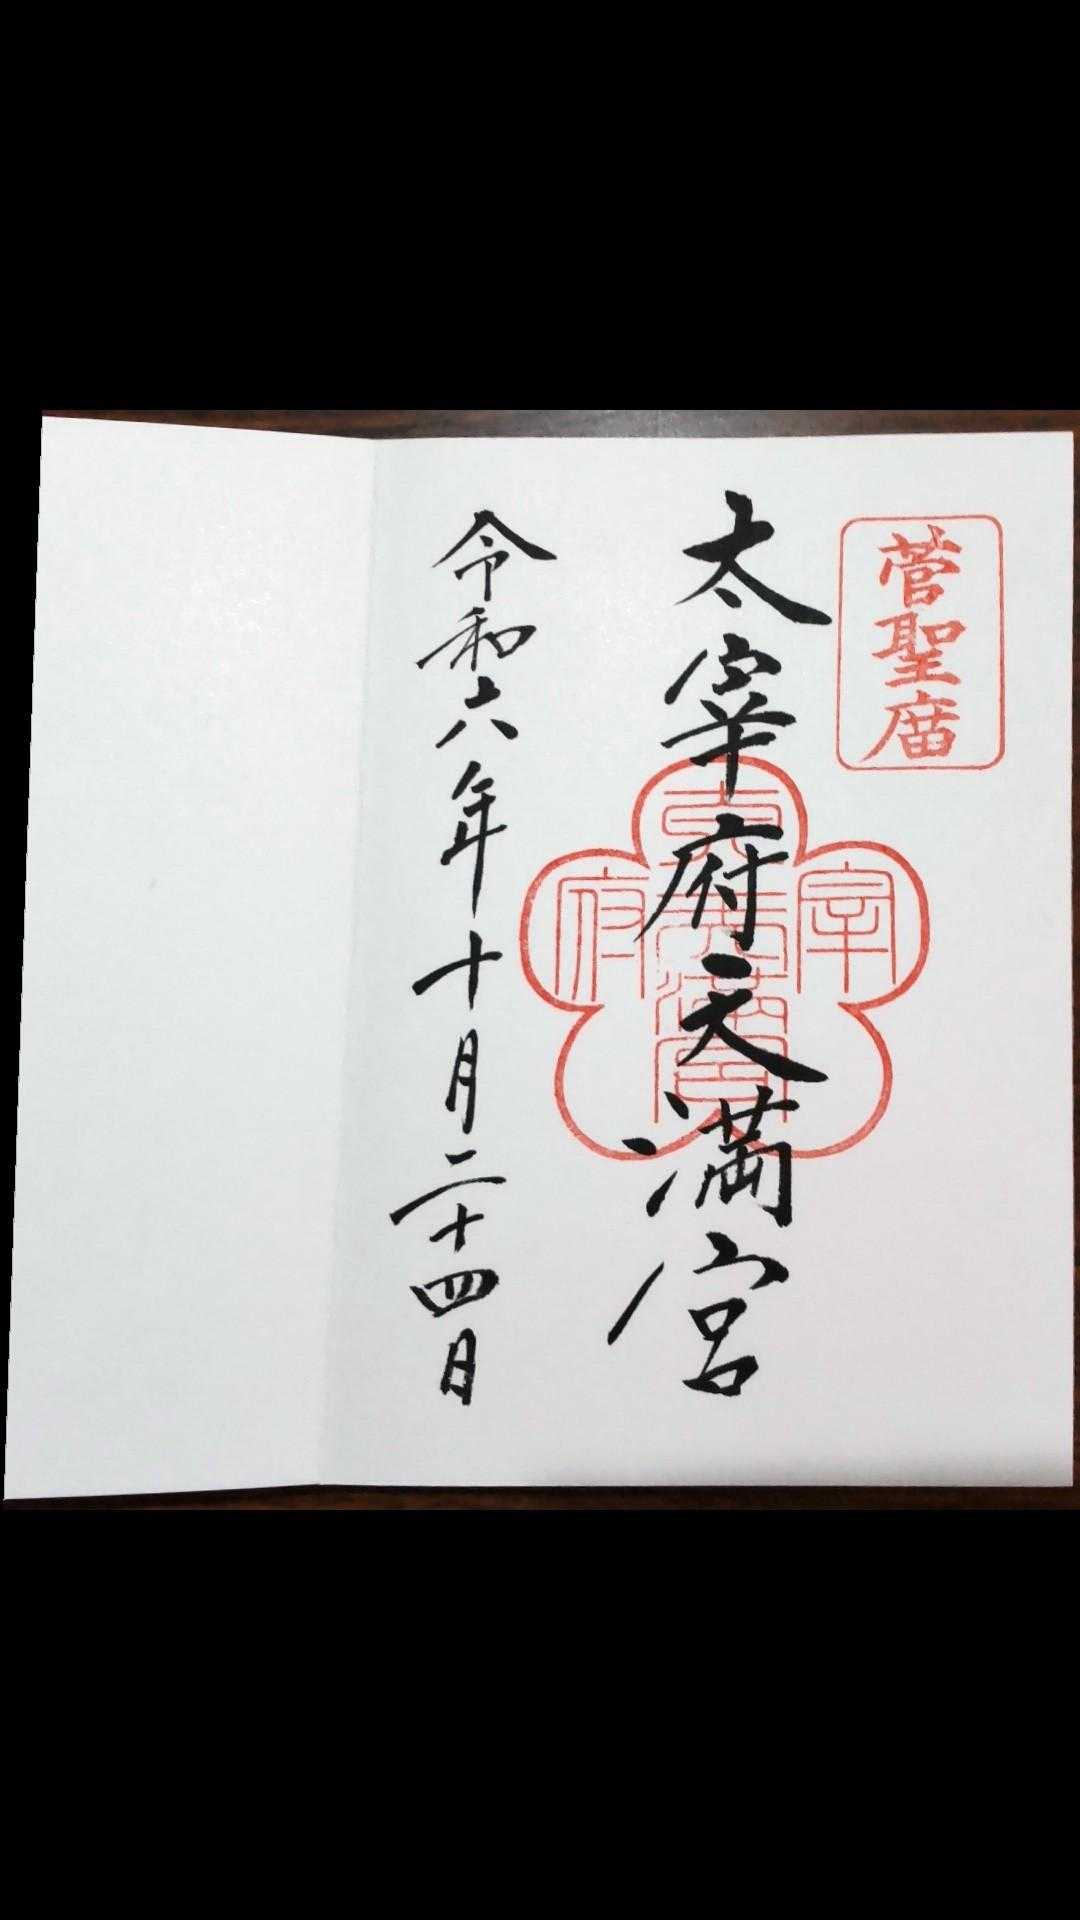 菅聖廟
太宰府天満宮
令和六年十月二十四日
宰
府
天満宮